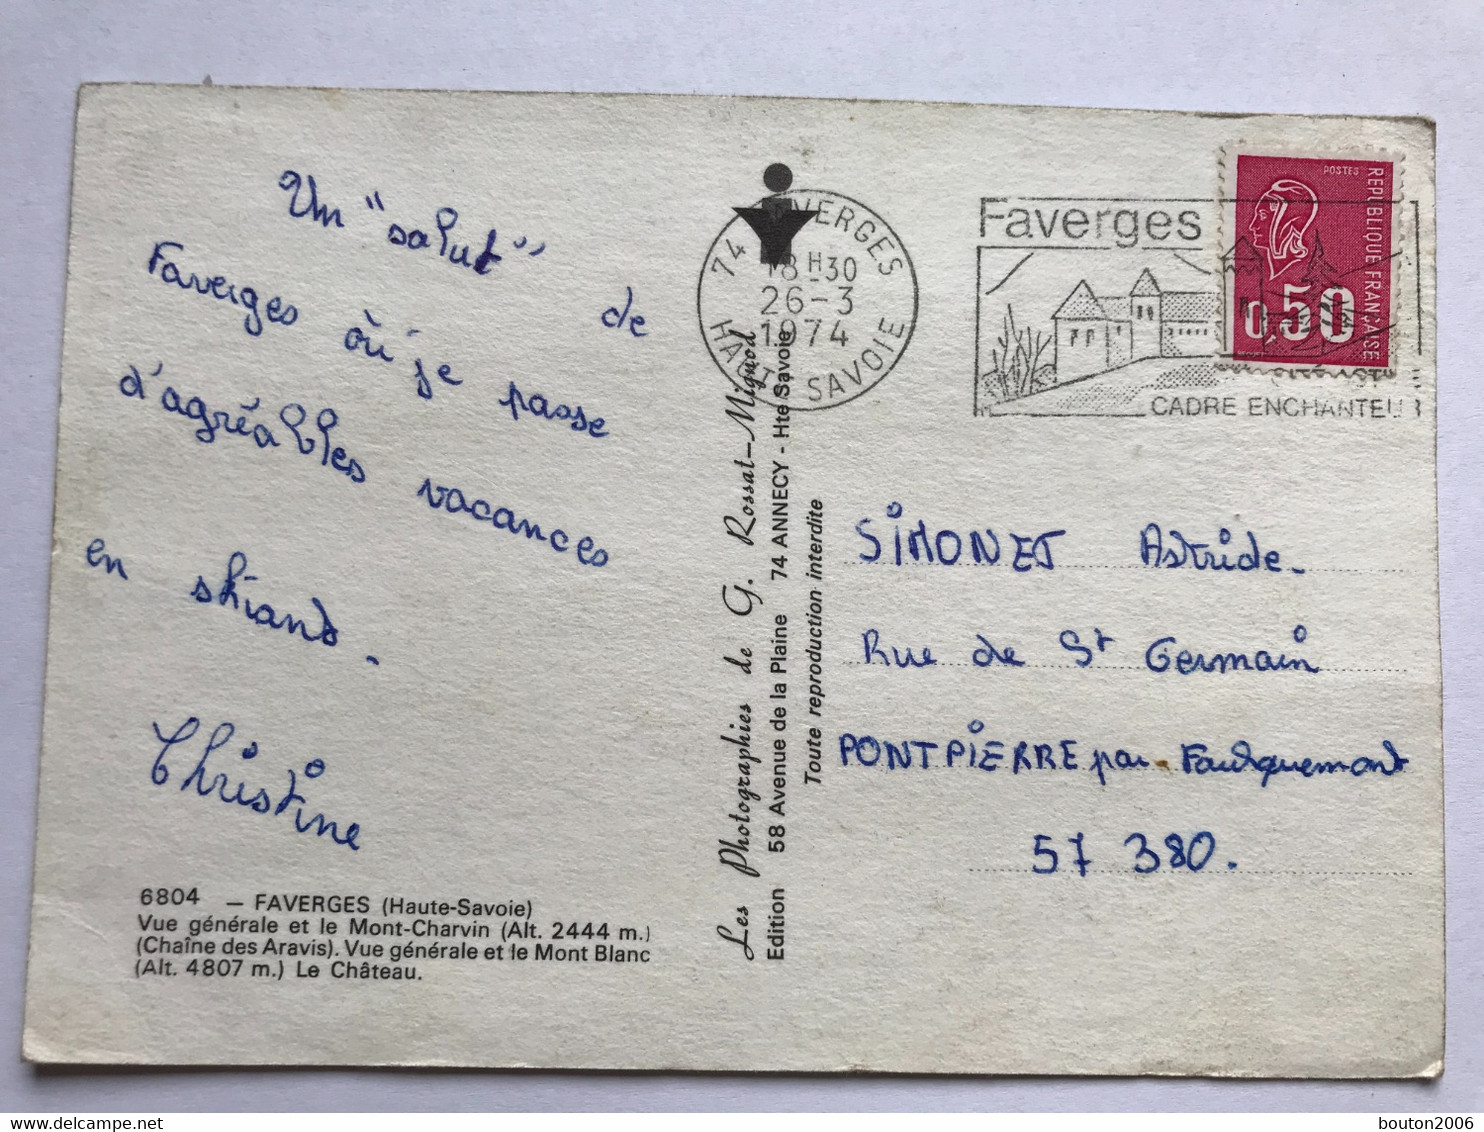 Un "salut" de
Faverges où je passe
d'agréables vacances
en skiant.
Christine
6804 — FAVERGES (Haute-Savoie)
Vue générale et le Mont-Charvin (Alt. 2444 m.)
(Chaîne des Aravis). Vue générale et le Mont Blanc
(Alt. 4807 m.) Le Château.
Les Photographies de G. Rossat-Mignod
Edition 58 Avenue de la Plaine 74 ANNECY - Hte Savoie
Toute reproduction interdite
74 FAVERGES
18H30
26-3
1974
HAUTE SAVOIE
Faverges
CADRE ENCHANTEUR
POSTES
REPUBLIQUE FRANÇAISE
0,50
SIMONET Astride.
Rue de St Germain
PONTPIERRE par Faulquemont
57 380.
delcampe.net
bouton2006